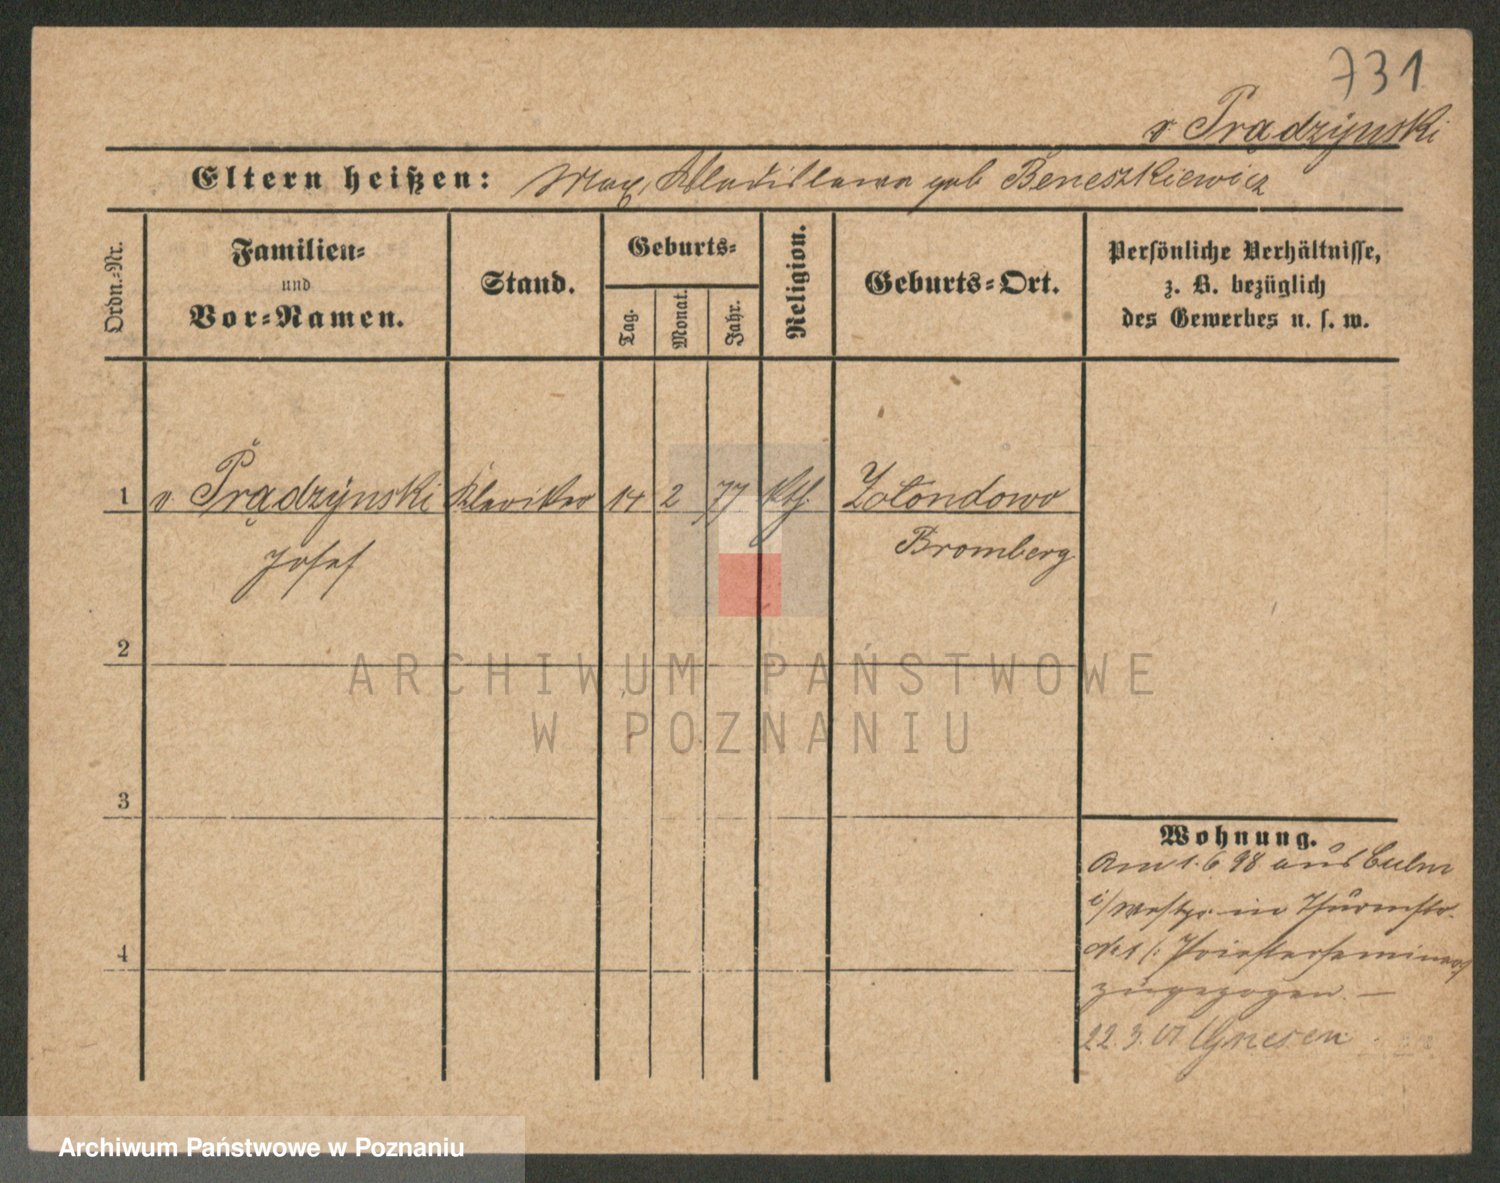 731
v Prądzÿnski
Eltern heißen: Max, Wladislawa geb Beneszkiewicz
Ordn.-Nr.
Familien-
und
Vor-Namen.
Stand.
Geburts-
Tag.
Monat.
Jahr.
Religion.
Geburts-Ort.
Persönliche Verhältnisse,
z. B. bezüglich
des Gewerbes u. s. w.
1 v. Prądzÿnski Kleriker 14 2 77 kth. Zolondowo
Josef Bromberg
2
ARCHIWUM PAŃSTWOWE
W POZNANIU
3
Wohnung.
Am 1.6 98 aus Culm
i/Westpr. in Thurmstr.
No 1 /: Priesterseminar
zugezogen. —
4
22.3.01 Gnesen
Archiwum Państwowe w Poznaniu